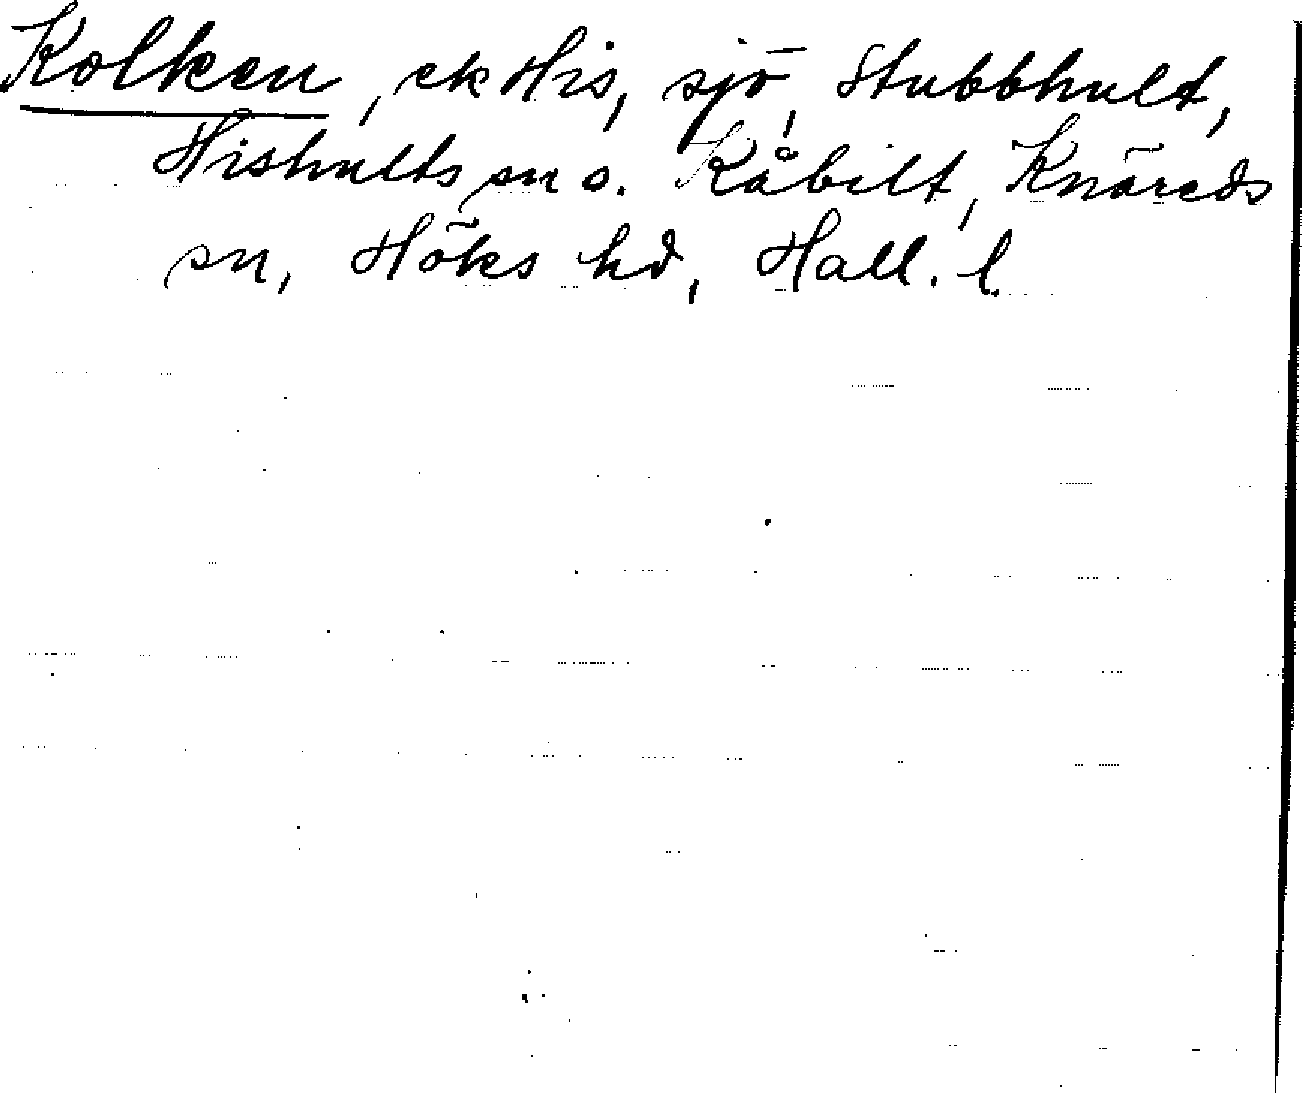 Kolken, ek His, sjö, Stubbhult,
Hishults sn o. Kåbilt, Knäreds
sn, Höks hd, Hall. l.